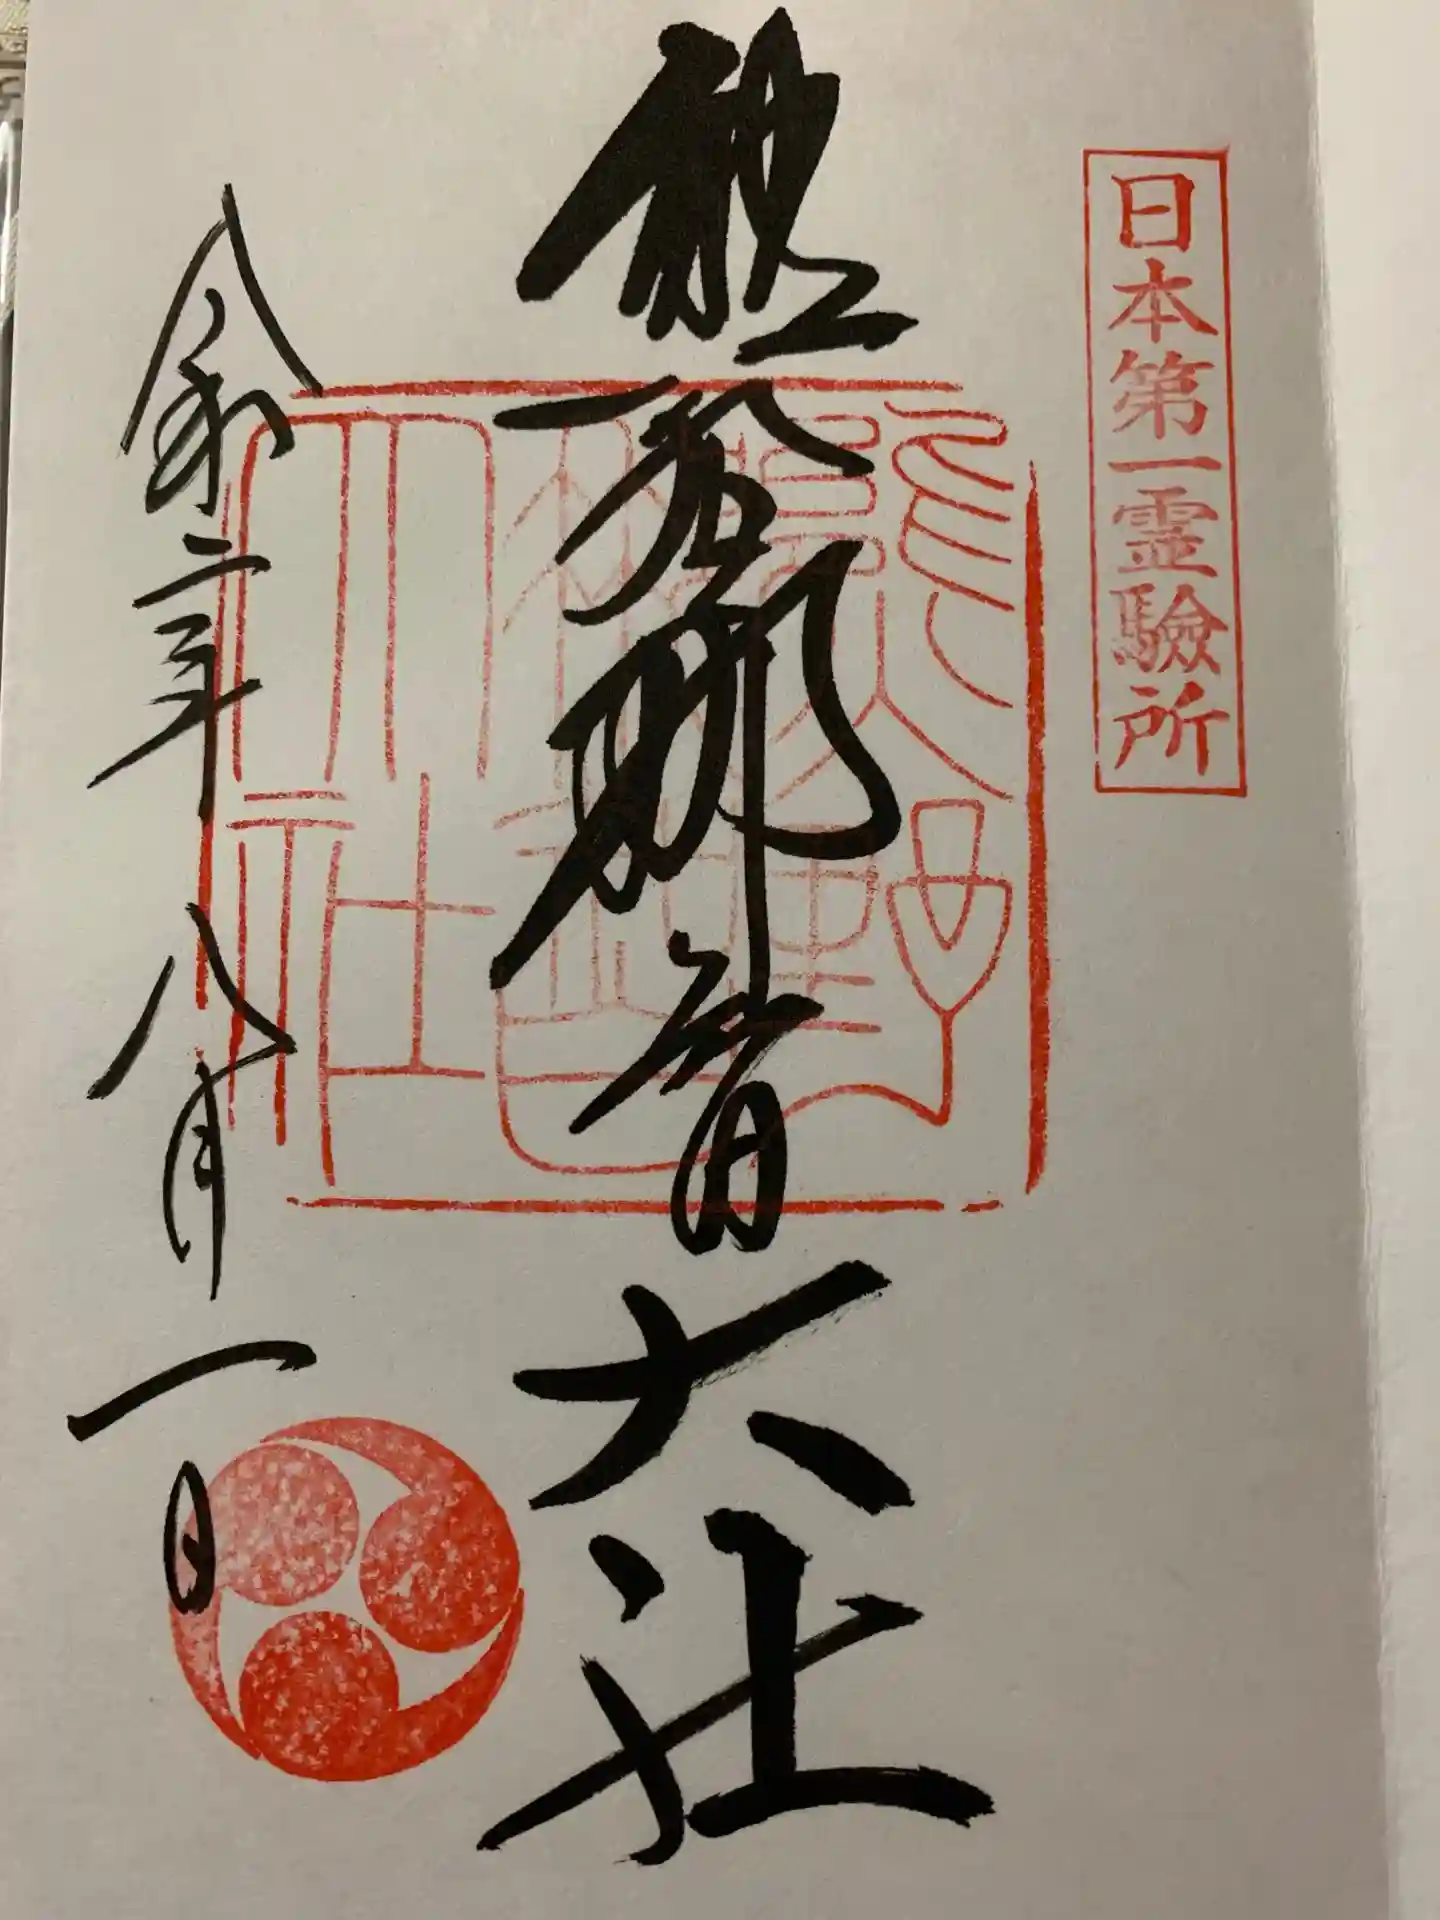 日本第一霊驗所
熊野那智大社
熊野
那智
大社
令和二年八月一日